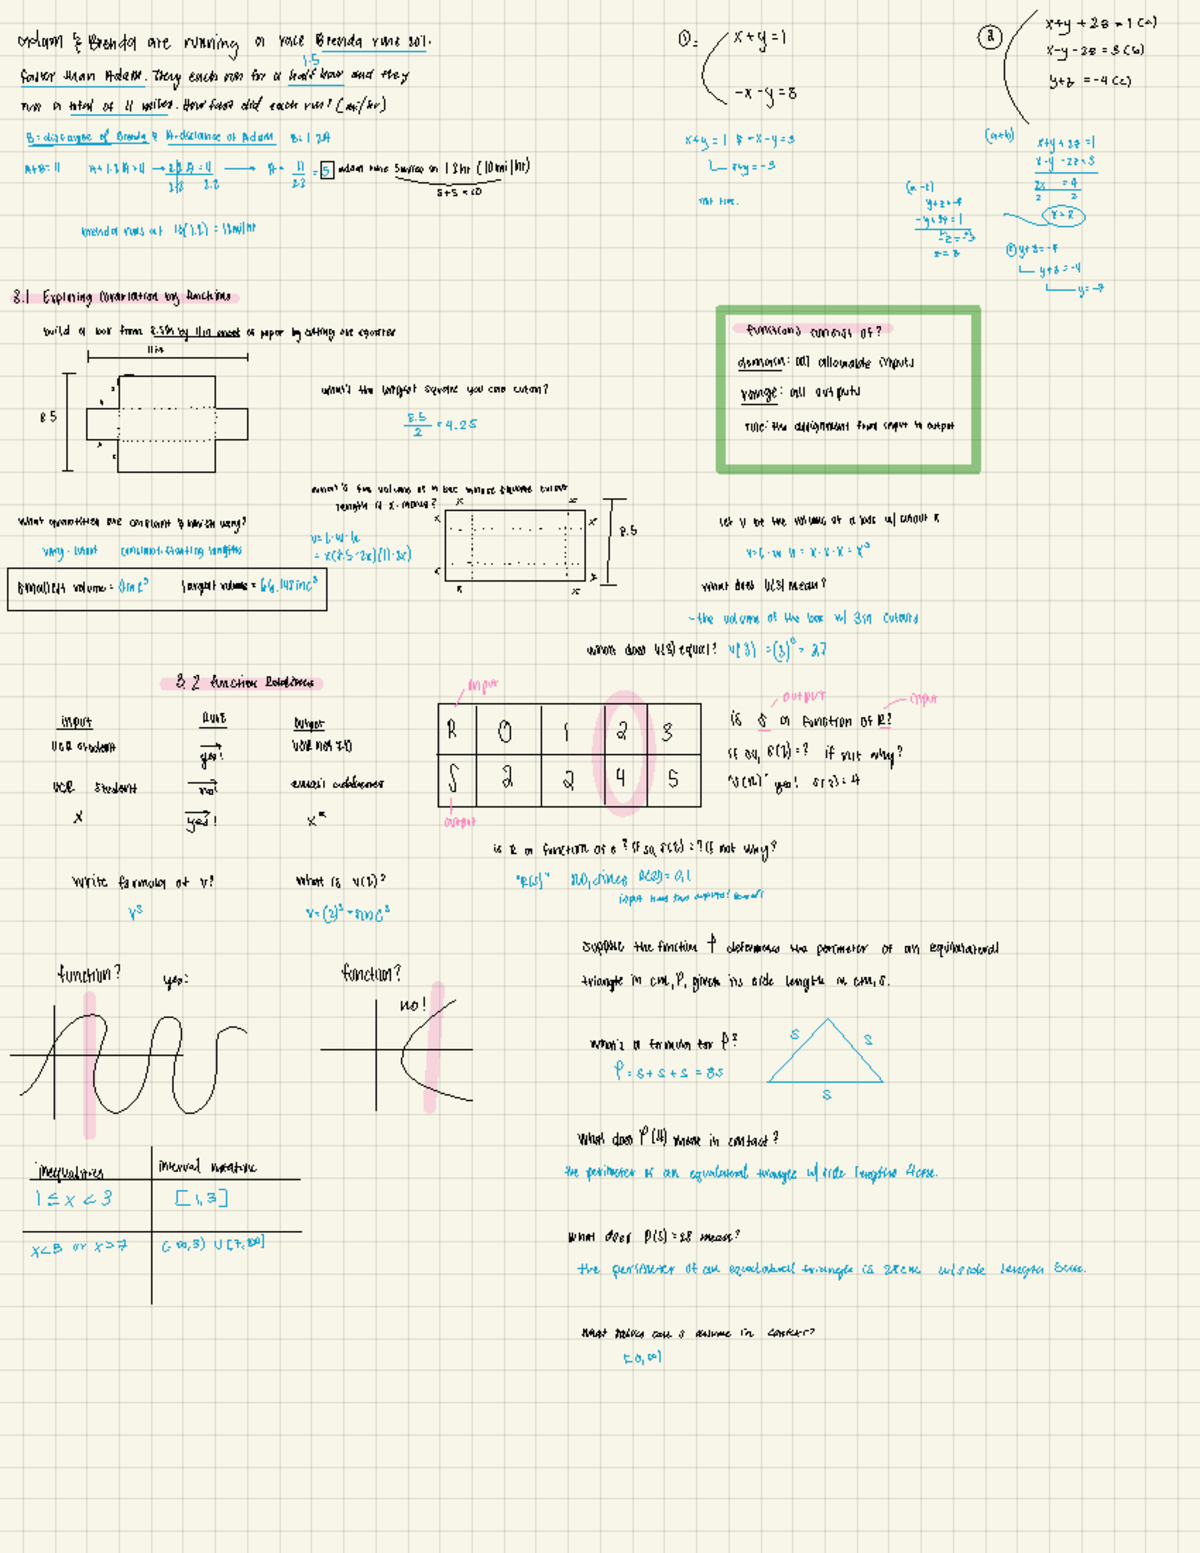 Adam & Brenda are running a race Brenda runs 20%.
faster than Adam. They each run for a half hour and they
run a total of 11 miles. How fast did each run? (mi/hr)
B = distance of Brenda & A = distance of Adam B = 1.2A
A+B=11 A+1.2A=11 → 2.2A = 11 → A = 11/2.2 = 5
2.2 2.2
5+5=10
Brenda runs at
①:
x+y=1
-x-y=8
x+y=1
not true.
②
x+y+2z=1(a)
x-y-2z=3(b)
y+z=-4(c)
(a+b)
x+y+2z=1
x-y-2z=3
2x =4
2 2
x=2
y+z=-4
y=-7
3.1 Exploring Covariation by functions
build a box from 8.5in by 11in sheet of paper by cutting out squares
11in
8.5
what's the largest square you can cutout?
8.5/2 = 4.25
functions consist of?
domain: all allowable inputs
range: all outputs
rule: the assignment from input to output
what's the volume of a box whose square cutout
length is x-inches?
v=l·w·h
= x(8.5-2x)(11-2x)
8.5
What quantities are constant & which vary?
smallest volume = 0in³ largest volume = 66.148in³
let V be the volume of a box w/ cutout x
v=l·w·h = x·x·x = x³
What does V(3) mean?
-the volume of the box w/ 3in cutouts
What does V(3) equal? V(3) = (3)³ = 27
3.2 function Relations
input Rule output
UCR student → yes!
UCR student → no! email addresses
x → yes!
input
R 0 1 2 3
S 2 2 4 5
output
output input
is S a function of R?
if so, S(2)=? if not why?
"S(R)" yes! S(2)=4
is R a function of S? If so, R(2)=? If not why?
"R(S)" no, since R(2)=0,1
input has two outputs!
Write formula of v?
v³
What is v(2)?
function? yes!
function?
no!
Suppose the function P determines the perimeter of an equilateral
triangle in cm, P, given its side length in cm, s.
What's a formula for P?
P=s+s+s=3s
s s
s
What does P(4) mean in context?
the perimeter of an equilateral triangle w/ side lengths 4cm.
What does P(s)=28 mean?
the perimeter of an equilateral triangle is 28cm w/side length scm.
What values can s assume in context?
inequalities interval notation
1≤x<3 [1,3]
x<3 or x>7